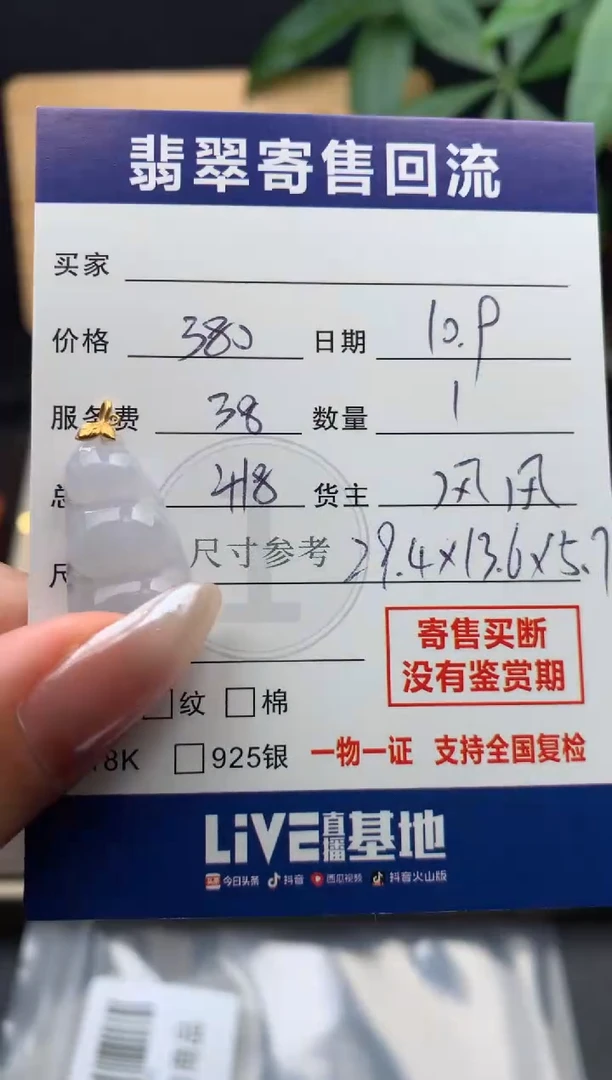 翡翠寄售回流
买家
价格 380 日期 10.9
服务费 38 数量 1
总 418 货主 风风
尺 尺寸参考 29.4×13.6×5.7
寄售买断
没有鉴赏期
纹 棉
18K 925银 一物一证 支持全国复检
LiVE直播基地
今日头条 抖音 西瓜视频 抖音火山版